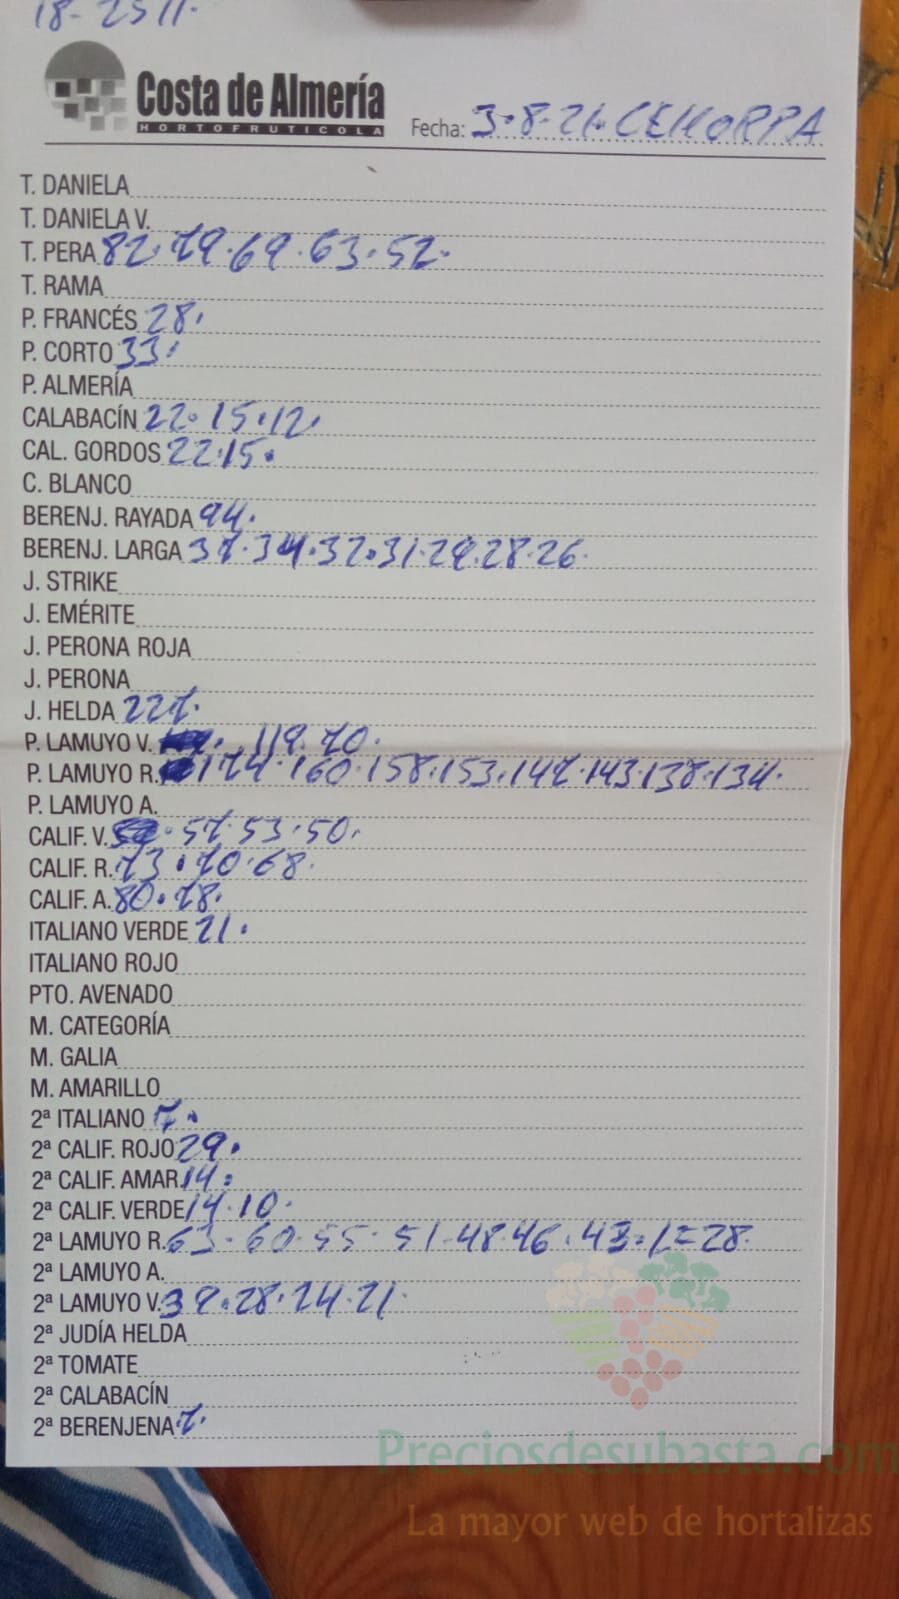 Costa de Almería
HORTOFRUTICOLA
Fecha: 3.8.21. CEHORPA
T. DANIELA
T. DANIELA V.
T. PERA 82. 79. 69. 63. 52.
T. RAMA
P. FRANCÉS 28.
P. CORTO 33.
P. ALMERÍA
CALABACÍN 22. 15. 12.
CAL. GORDOS 22. 15.
C. BLANCO
BERENJ. RAYADA 94.
BERENJ. LARGA 37. 34. 32. 31. 29. 28. 26.
J. STRIKE
J. EMÉRITE
J. PERONA ROJA
J. PERONA
J. HELDA 227.
P. LAMUYO V. 119. 70.
P. LAMUYO R. 174. 160. 158. 153. 147. 143. 138. 134.
P. LAMUYO A.
CALIF. V. 57. 53. 50.
CALIF. R. 73. 70. 68.
CALIF. A. 80. 78.
ITALIANO VERDE 21.
ITALIANO ROJO
PTO. AVENADO
M. CATEGORÍA
M. GALIA
M. AMARILLO
2ª ITALIANO 7.
2ª CALIF. ROJO 29.
2ª CALIF. AMAR. 14.
2ª CALIF. VERDE 14. 10.
2ª LAMUYO R. 63. 60. 55. 51. 48. 46. 43. L=28.
2ª LAMUYO A.
2ª LAMUYO V. 39. 28. 24. 21.
2ª JUDÍA HELDA
2ª TOMATE
2ª CALABACÍN
2ª BERENJENA 7.
Preciosdesubasta.com
La mayor web de hortalizas